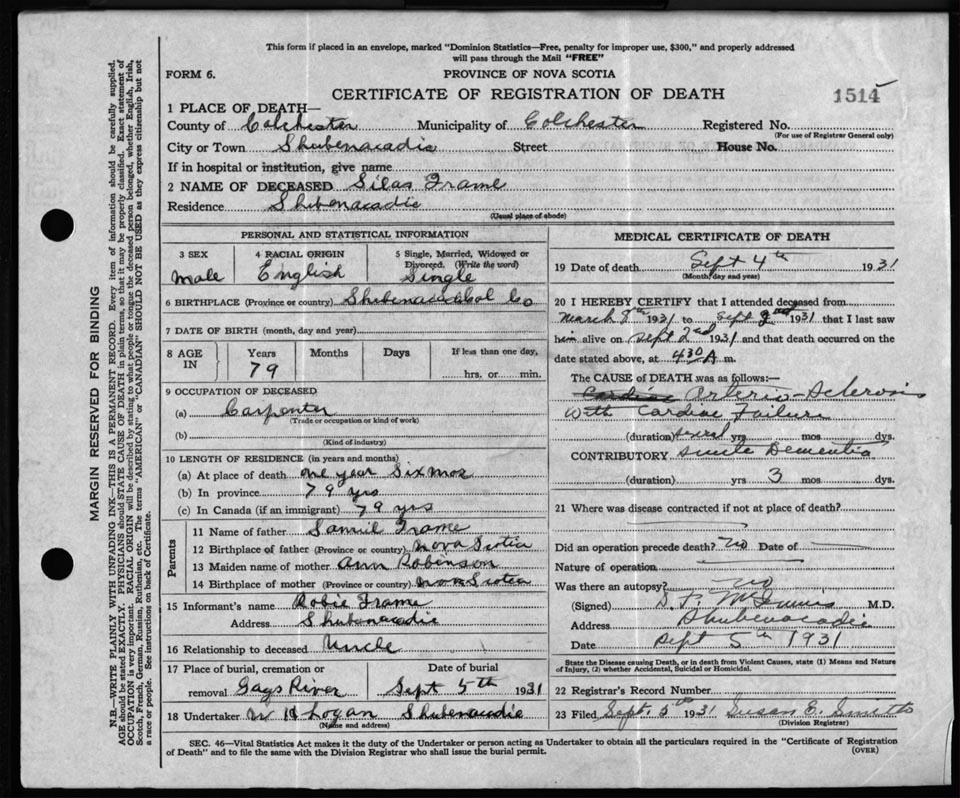 This form if placed in an envelope, marked "Dominion Statistics—Free, penalty for improper use, $300," and properly addressed
will pass through the Mail "FREE"
FORM 6. PROVINCE OF NOVA SCOTIA
CERTIFICATE OF REGISTRATION OF DEATH 1514
1 PLACE OF DEATH—
County of Colchester Municipality of Colchester Registered No.
(For use of Registrar General only)
City or Town Shubenacadie Street House No.
If in hospital or institution, give name
2 NAME OF DECEASED Silas Frame
Residence Shubenacadie
(Usual place of abode)
PERSONAL AND STATISTICAL INFORMATION
3 SEX 4 RACIAL ORIGIN 5 Single, Married, Widowed or
Divorced. (Write the word)
male English Single
6 BIRTHPLACE (Province or country) Col Co
7 DATE OF BIRTH (month, day and year)
8 AGE IN Years Months Days If less than one day,
79 hrs. or min.
9 OCCUPATION OF DECEASED
(a) Carpenter
(Trade or occupation or kind of work)
(b)
(Kind of industry)
10 LENGTH OF RESIDENCE (in years and months)
(a) At place of death one year six mos
(b) In province 79 yrs
(c) In Canada (if an immigrant) 79 yrs
Parents
11 Name of father Frame
12 Birthplace of father (Province or country) Nova Scotia
13 Maiden name of mother Ann Robinson
14 Birthplace of mother (Province or country) Nova Scotia
15 Informant's name Robie Frame
Address Shubenacadie
16 Relationship to deceased Uncle
17 Place of burial, cremation or Date of burial
removal Gays River Sept 5th 1931
18 Undertaker W H Logan Shubenacadie
(Name and address)
MEDICAL CERTIFICATE OF DEATH
19 Date of death Sept 4th 1931
(Month, day and year)
20 I HEREBY CERTIFY that I attended deceased from
March 8th 1931 to Sept 2nd 1931 that I last saw
him alive on Sept 2nd 1931 and that death occurred on the
date stated above, at 430 A m.
The CAUSE of DEATH was as follows:—
Cardiac Arterio-Sclerosis
with Cardiac Failure
(duration) yrs mos dys.
CONTRIBUTORY Dementia
(duration) yrs 3 mos dys.
21 Where was disease contracted if not at place of death?
Did an operation precede death? no Date of
Nature of operation
Was there an autopsy? no
(Signed) M.D.
Address Shubenacadie
Date Sept 5th 1931
State the Disease causing Death, or in death from Violent Causes, state (1) Means and Nature
of Injury, (2) whether Accidental, Suicidal or Homicidal.
22 Registrar's Record Number
23 Filed Sept. 5th 1931 Susan E. Smith
(Division Registrar)
SEC. 46—Vital Statistics Act makes it the duty of the Undertaker or person acting as Undertaker to obtain all the particulars required in the "Certificate of Registration
of Death" and to file the same with the Division Registrar who shall issue the burial permit. (OVER)
MARGIN RESERVED FOR BINDING
N.B.—WRITE PLAINLY WITH UNFADING INK—THIS IS A PERMANENT RECORD. Every item of information should be carefully supplied.
AGE should be stated EXACTLY. PHYSICIANS should STATE CAUSE OF DEATH in plain terms, so that it may be properly classified. Exact statement of
OCCUPATION is very important. RACIAL ORIGIN will be described by stating to what people or tongue the deceased person belonged, whether English, Irish,
Scotch, French, German, Russian, Ruthenian, etc. The terms "AMERICAN" or "CANADIAN" SHOULD NOT BE USED as they express citizenship but not
a race or people. See instructions on back of Certificate.